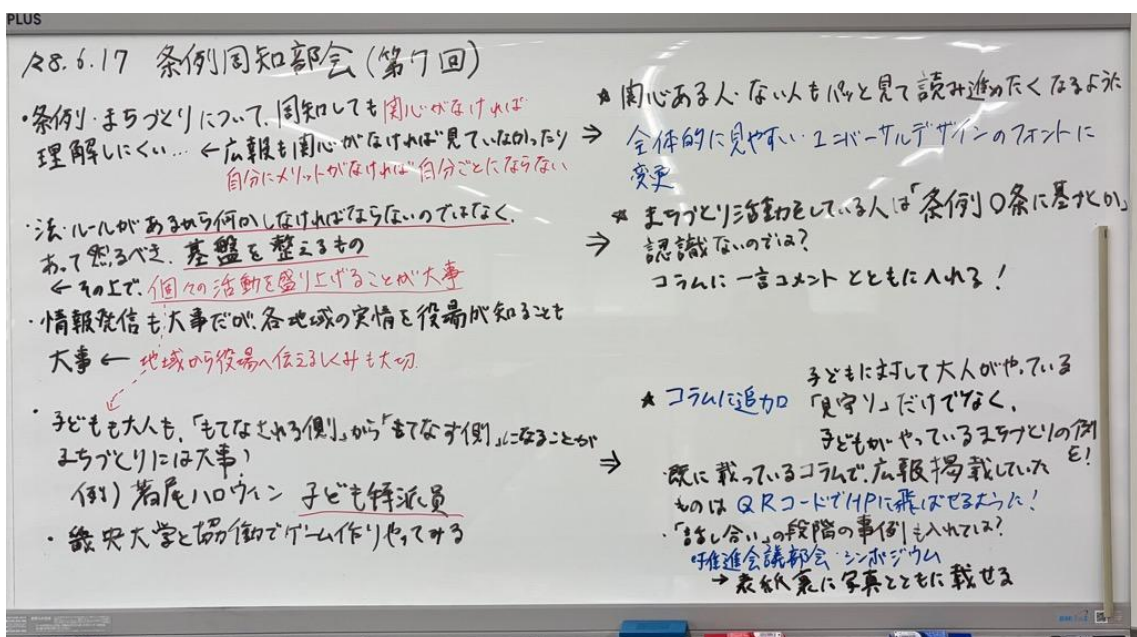 PLUS
R8.6.17 条例周知部会(第7回)
・条例・まちづくりについて、周知しても関心がなければ
理解しにくい… ← 広報も関心がなければ見ていなかったり
自分にメリットがなければ自分ごとにならない
・法・ルールがあるから何かしなければならないのではなく、
あって然るべき、基盤を整えるもの
← その上で、個々の活動を盛り上げることが大事
・情報発信も大事だが、各地域の実情を役場が知ることも
大事 ← 地域から役場へ伝えるしくみも大切
・子どもも大人も、「もてなされる側」から「もてなす側」になることが
まちづくりには大事!
例) 着尾ハロウィン 子ども特派員
・畿央大学と協働でゲーム作りやってみる
★ 関心ある人・ない人もパッと見て読み進めたくなるように
⇒ 全体的に見やすい・ユニバーサルデザインのフォントに
変更
★ まちづくり活動をしている人は「条例〇条に基づくか」
⇒ 認識ないのでは?
コラムに一言コメントとともに入れる!
★ コラムに追加 子どもに対して大人がやっている
「見守り」だけでなく、
子どもがやっているまちづくりの例
を!
⇒ ・既に載っているコラムで、広報掲載していた
ものはQRコードでHPに飛ばせるように!
・「話し合い」の段階の事例も入れては?
推進会議部会・シンポジウム
→ 表紙裏に写真とともに載せる